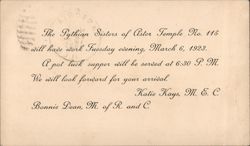 The Pythian Sisters of Aster Temple No. 115
will have work Tuesday evening, March 6, 1923.
A pot luck supper will be served at 6:30 P. M.
We will look forward for your arrival
Katie Kays, M. E. C.
Bonnie Dean, M. of R. and C.